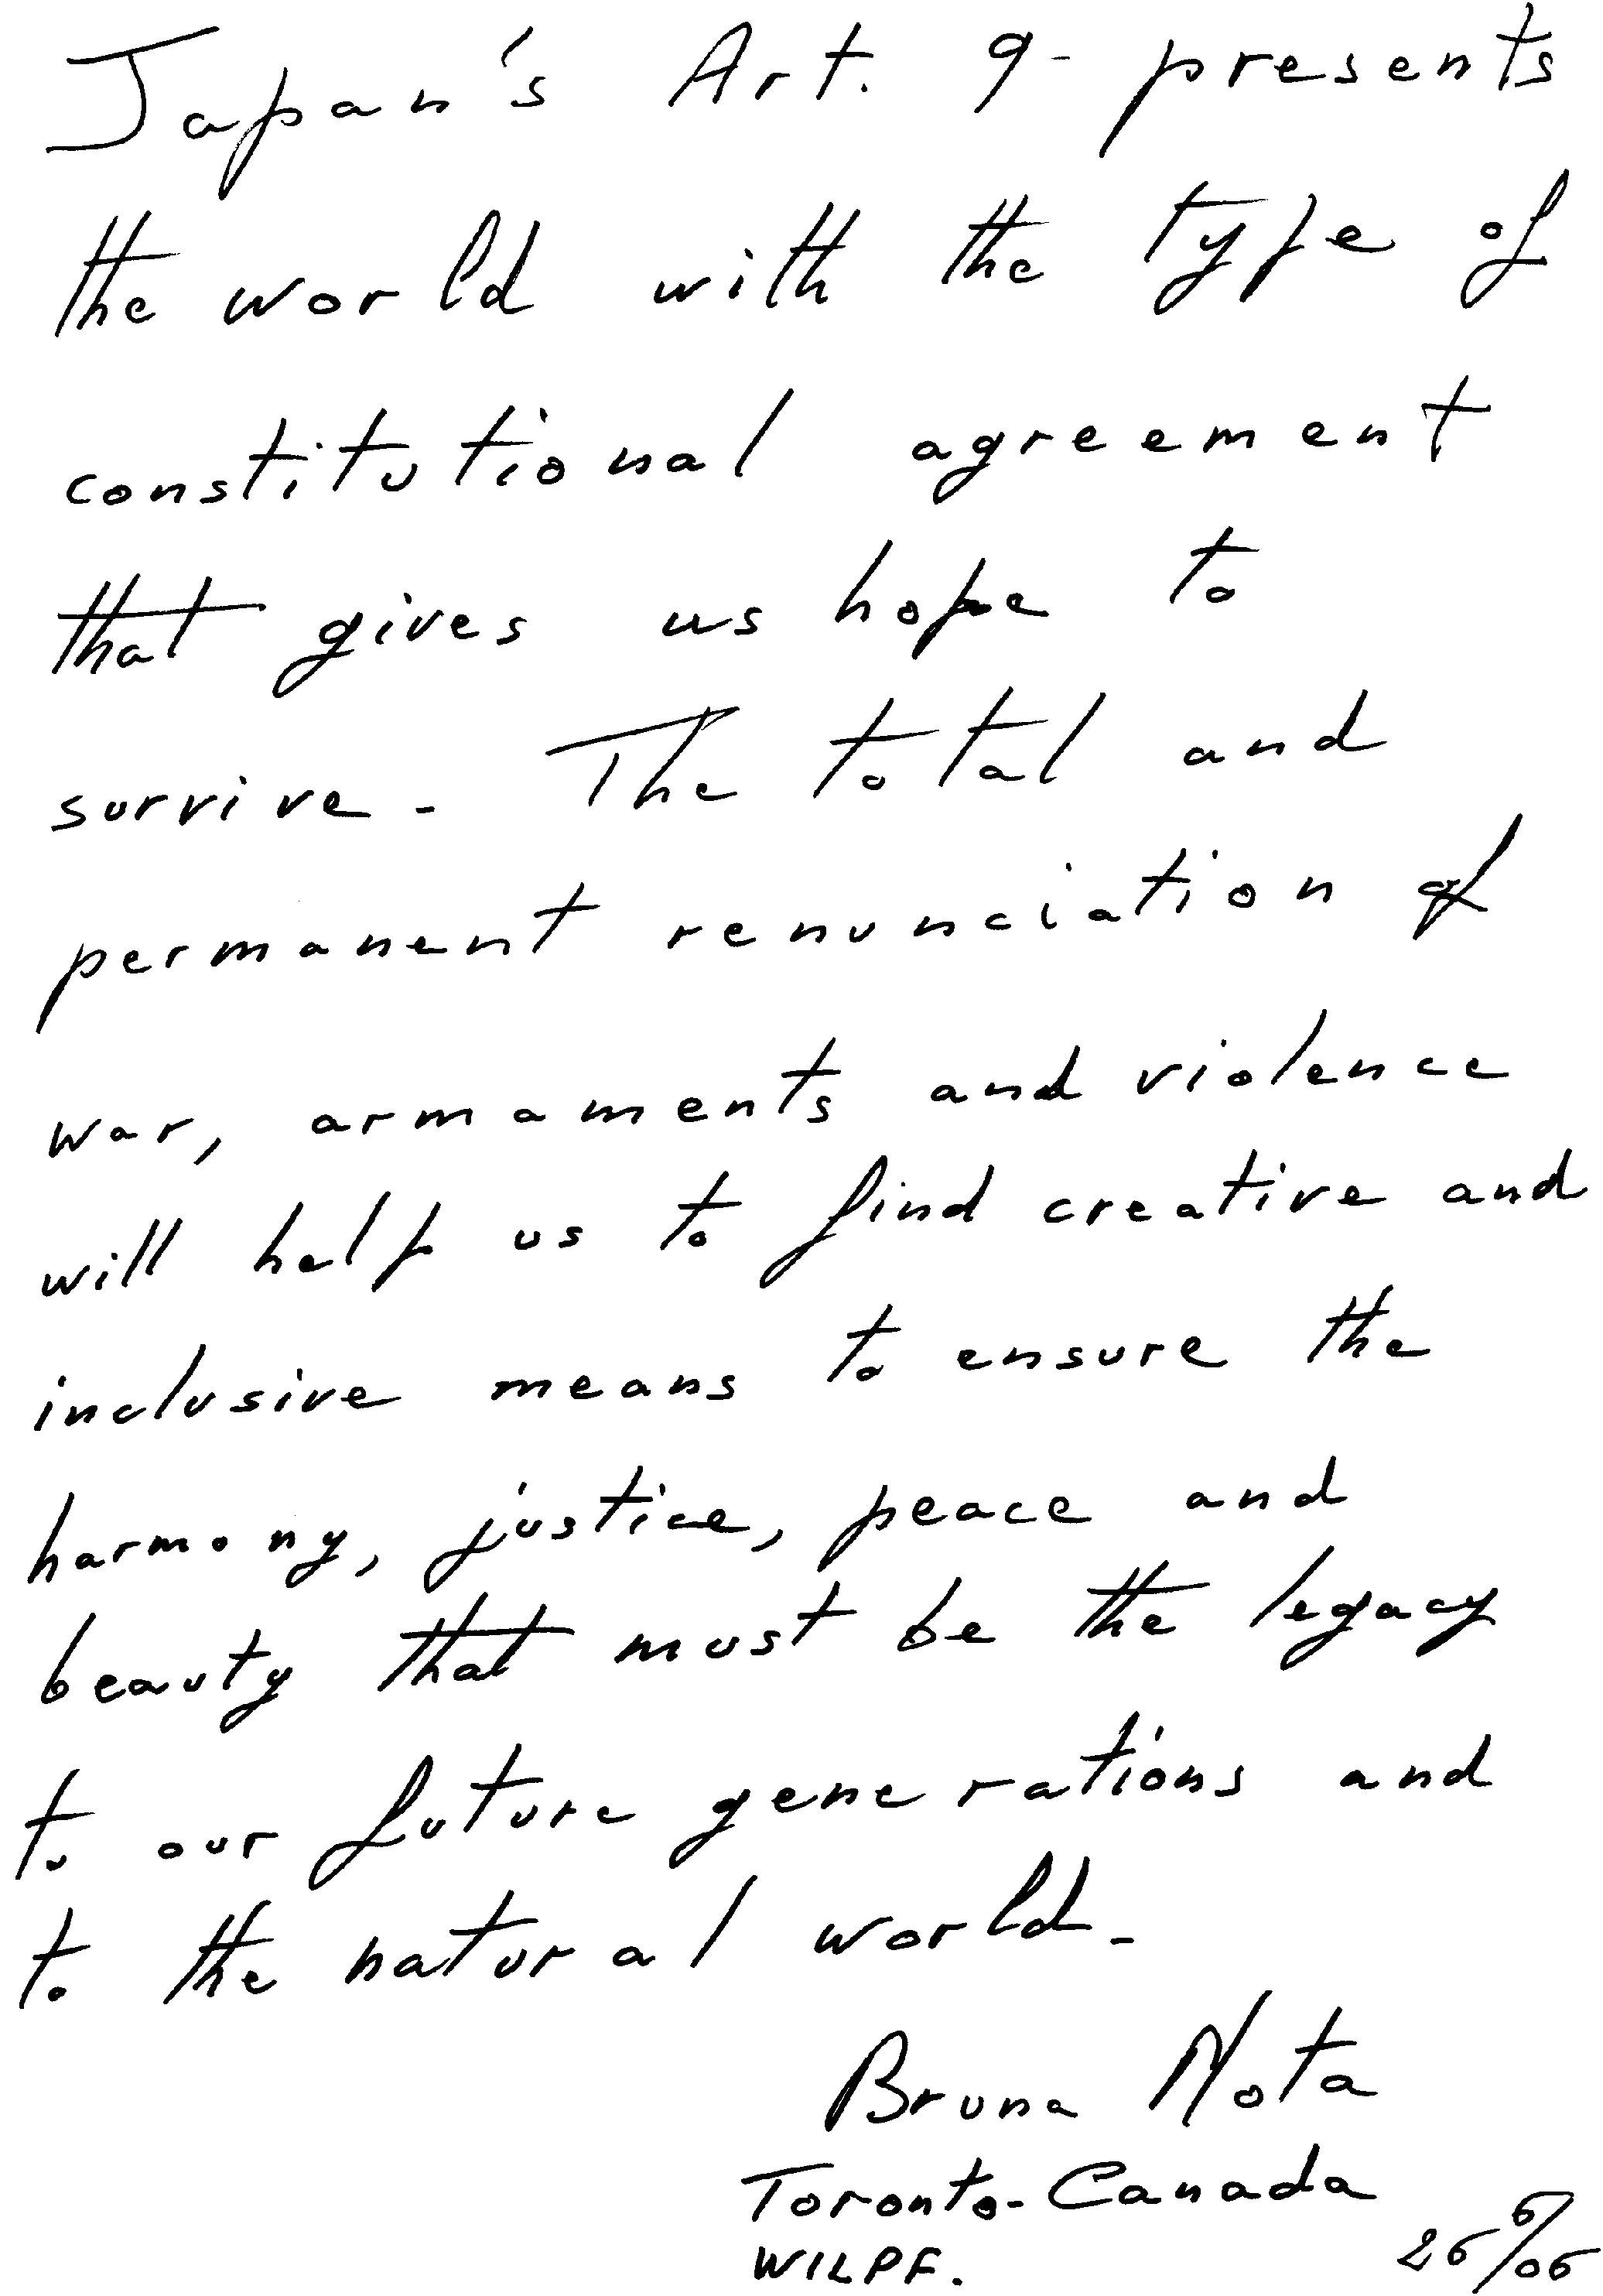 Japan's Art. 9 - presents
the world with the type of
constitutional agreement
that gives us hope to
survive - The total and
permanent renunciation of
war, armaments and violence
will help us to find creative and
inclusive means to ensure the
harmony, justice, peace and
beauty that must be the legacy
to our future generations and
to the natural world -
Bruna Nota
Toronto - Canada
WILPF. 26 6/06